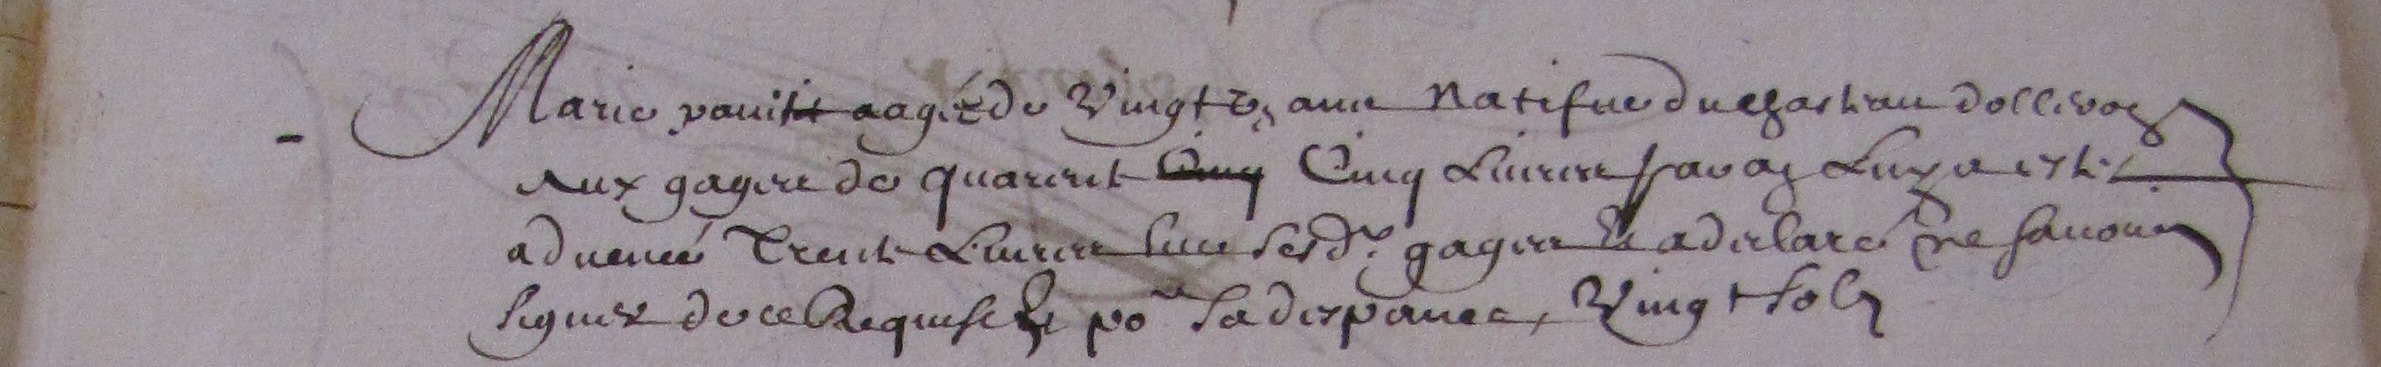 Marie pauit aagee de Vingt ans Natifue du chasteau dolleron
Aux gages de quarente Cinq Liures par an Luy a esté
aduencé Trente Liures sur sesd. gages Et a declaré ne sauoir
signer de ce Requise Et po.r sa despance, Vingt solz